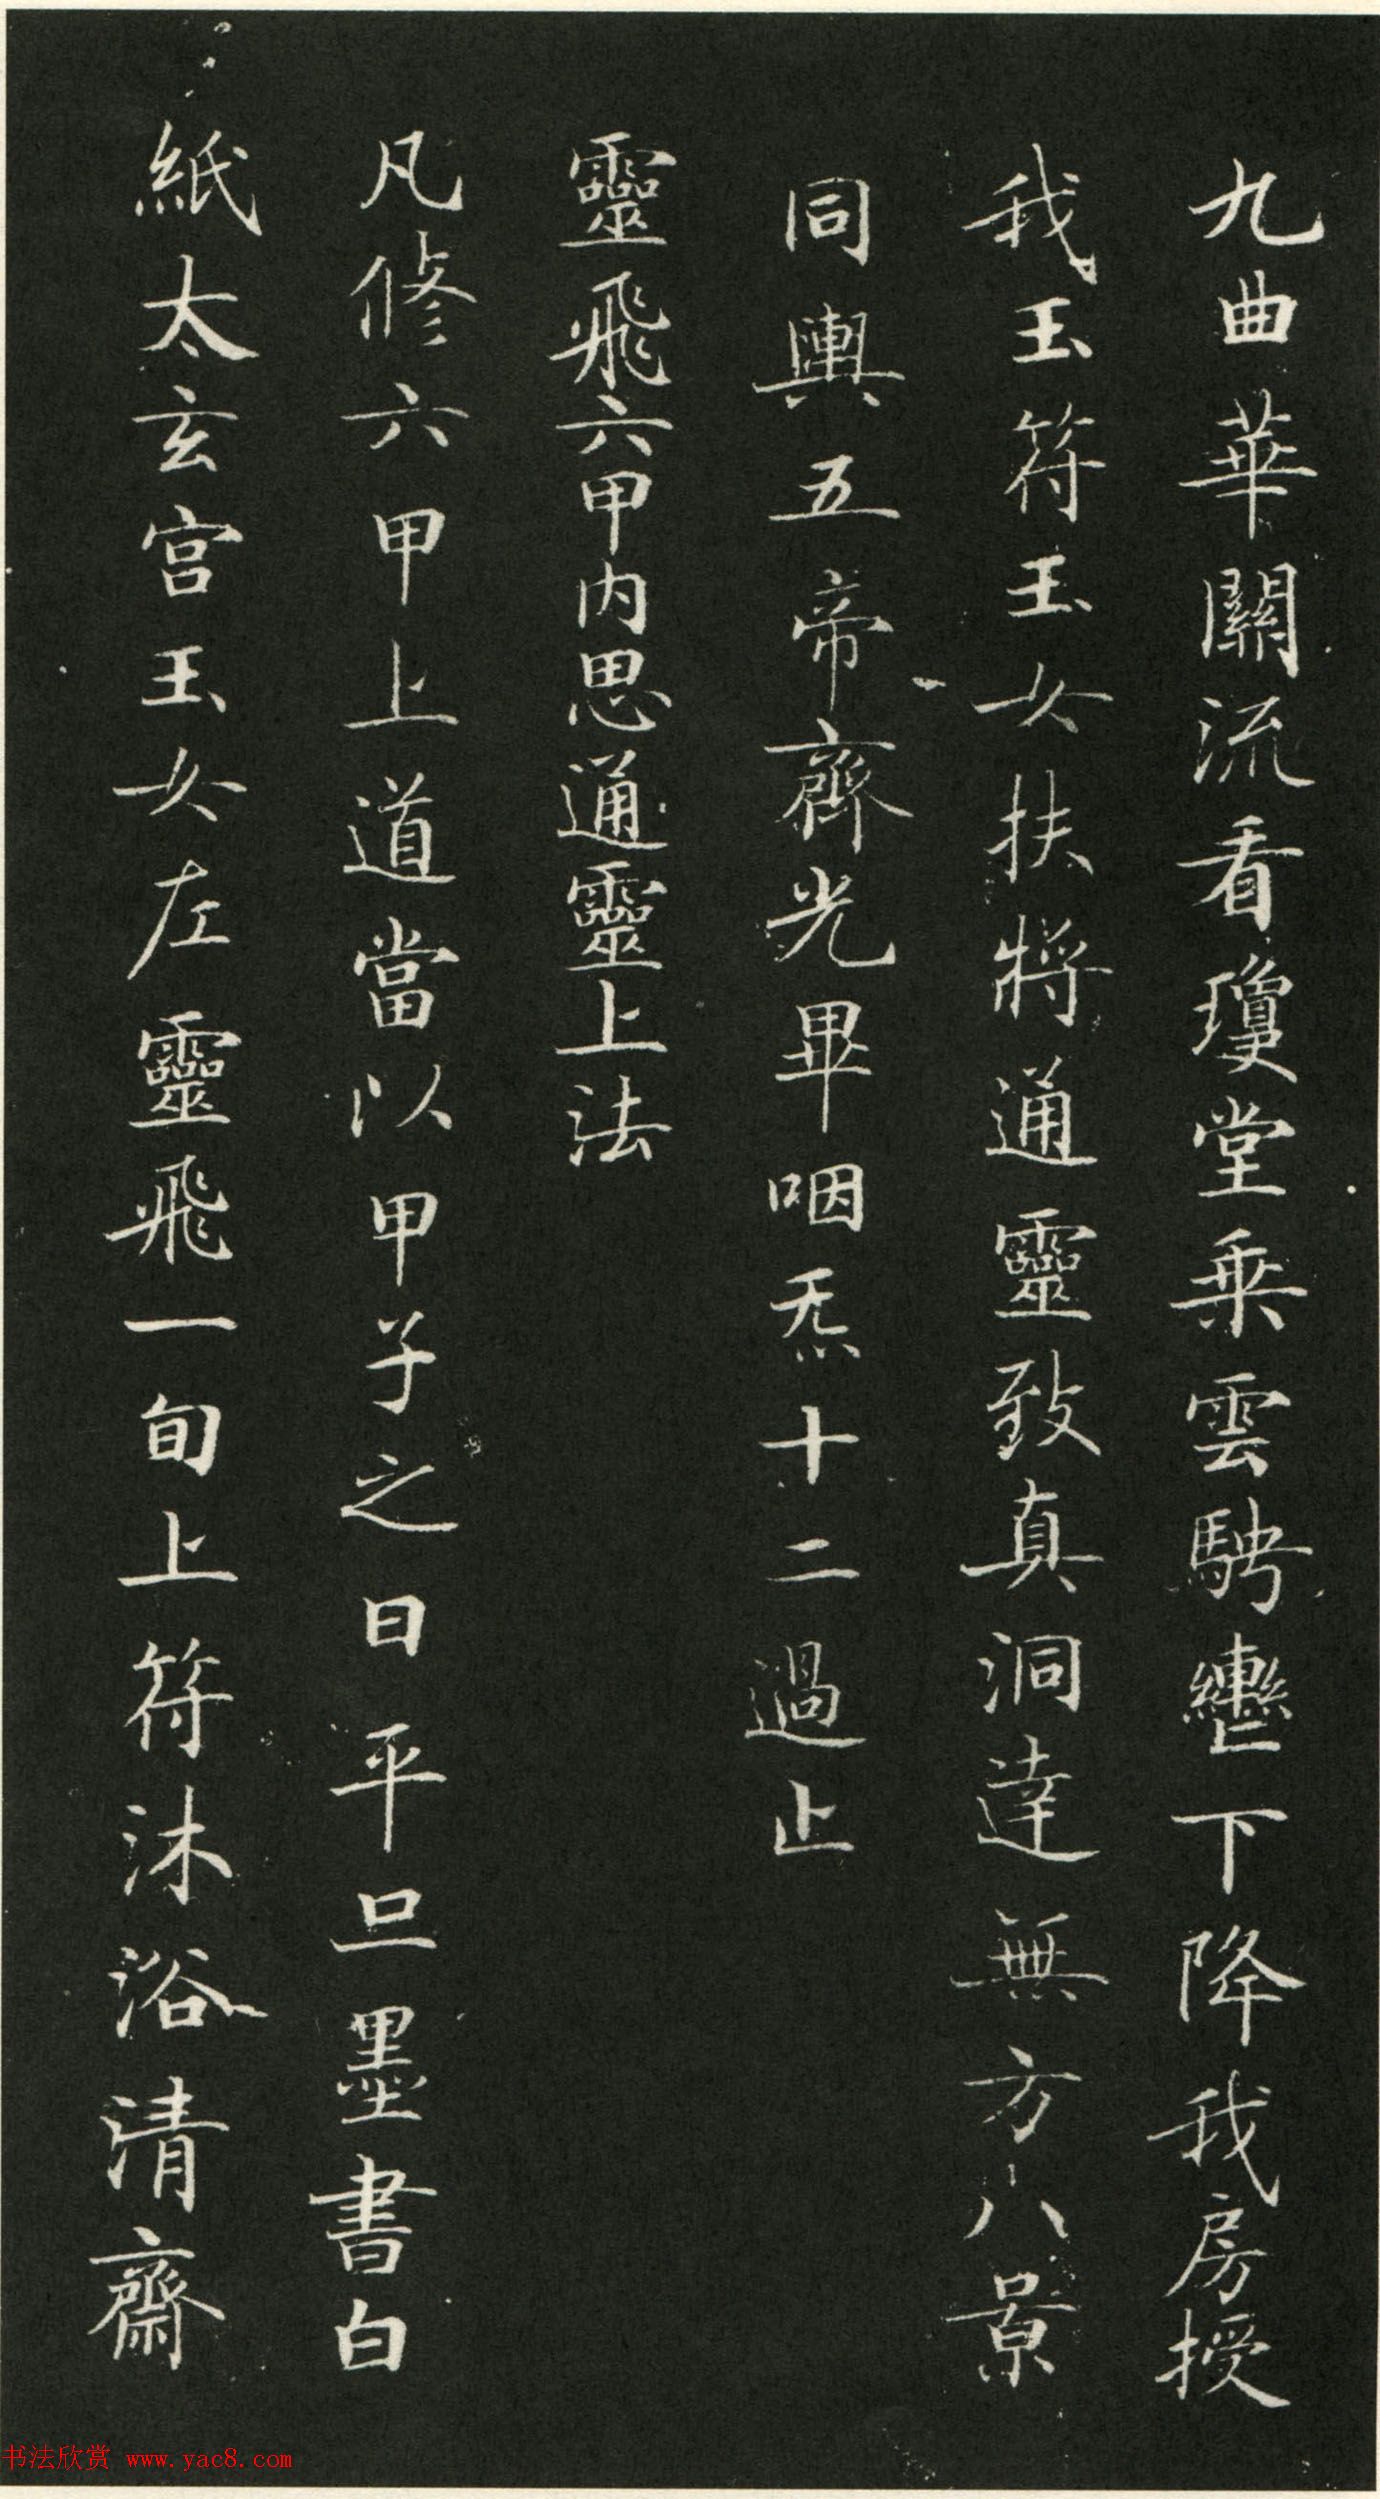 九曲華關流看瓊堂乗雲騁轡下降我房授
我玉符玉女扶將通靈致真洞達無方八景
同輿五帝齊光畢咽炁十二過止
靈飛六甲内思通靈上法
凡脩六甲上道當以甲子之日平旦墨書白
紙太玄宫玉女左靈飛一旬上符沐浴清齋
书法欣赏 www.yac8.com